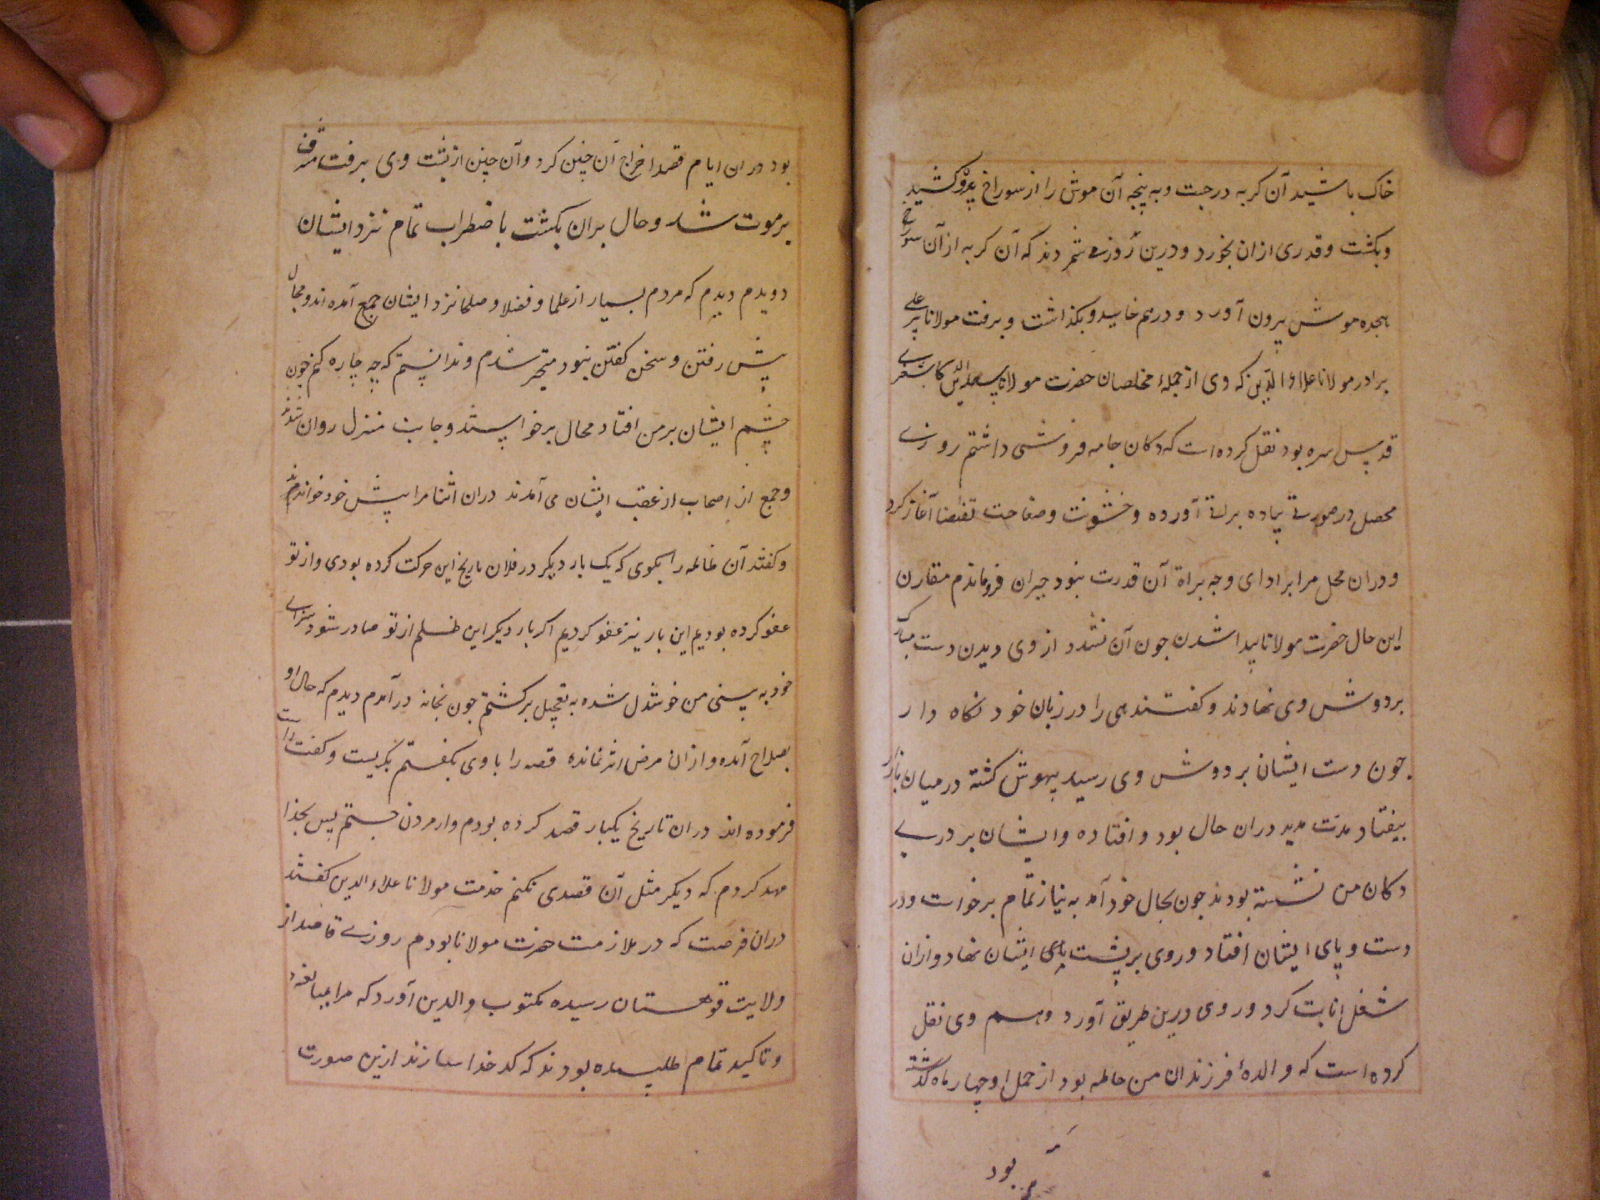 خاک باشید آن کربه درجست و به پنجه آن موش را از سوراخ بیرون کشید
و بکشت و قدری ازان بخورد و درین روز شمردند که آن کربه از آن سوراخ
هجده موش بیرون آورد و درهم خایید و بکذاشت و برفت مولانا پیر علی
برادر مولانا علاؤ الدین که وی از جملهٔ مخلصان حضرت مولانا سعد الدین کاشغری
قدس سره بود نقل کرده است که دکان جامه فروشی داشتم روزے
محصل در صورتے پیاده براتے آورده و خشونت و صفاحت تقاضا آغاز کرد
و دران محل مرا بر ادای وجه براة آن قدرت نبود حیران فروماندم مقارن
این حال حضرت مولانا پیدا شدند جون آن تشدد از وی دیدن دست مبارک
بر دوش وی نهادند و کفتند هی را در زبان خود نکاه دار
جون دست ایشان بر دوش وی رسید بیهوش کشته در میان بازار
بیفتاد مدت مدید دران حال بود و افتاده و ایشان بر در
دکان من نشسته بودند جون بحال خود آمد به نیاز تمام برخواست و در
دست و پای ایشان افتاد و روی بر پشت پای ایشان نهاد و ازان
شغل انابت کرد و روی درین طریق آورد و هم وی نقل
کرده است که والدهٔ فرزندان من حامله بود از حمل او چهار ماه گذشته
بود
بود دران ایام قصد اخراج آن جنین کرد و آن جنین از پشت وی برفت مشرف
بر موت شد و حال بران بکشت با ضطراب تمام نزد ایشان
دویدم دیدم که مردم بسیار از علما و فضلا و صلحا نزد ایشان جمع آمده اند و مجال
پیش رفتن و سخن کفتن نبود متحیر شدم و ندانستم که چه چاره کنم جون
چشم ایشان بر من افتاد محال برخواستند و جانب منزل روان شدند
و جمع از اصحاب از عقب ایشان می آمدند دران اثنا مرا پیش خود خواندند
و کفتند آن ظالمه را بکوی که یک بار دیکر در فلان تاریخ این حرکت کرده بودی و از تو
عفو کرده بودیم این بار نیز عفو کردیم اکر بار دیکر این ظلم از تو صادر شود سزاے
خود به بینی من خوشدل شده به تعجیل برکشتم جون بخانه درآمدم دیدم که حال او
بصلاح آمده و ازان مرض اثر نمانده قصه را با وی بکفتم بکریست و کفت راست
فرموده اند دران تاریخ یکبار قصد کرده بودم و از مردن جستم پس بخدا
عهد کردم که دیکر مثل آن قصدی نکنم خدمت مولانا علاء الدین کفتند
دران فرصت که در ملازمت حضرت مولانا بودم روزے قاصد از
ولایت قوهستان رسیده مکتوب والدین آورد که مرا بمبالغه
و تاکید تمام طلبیده بودند که کدخدا سازند ازین صورت